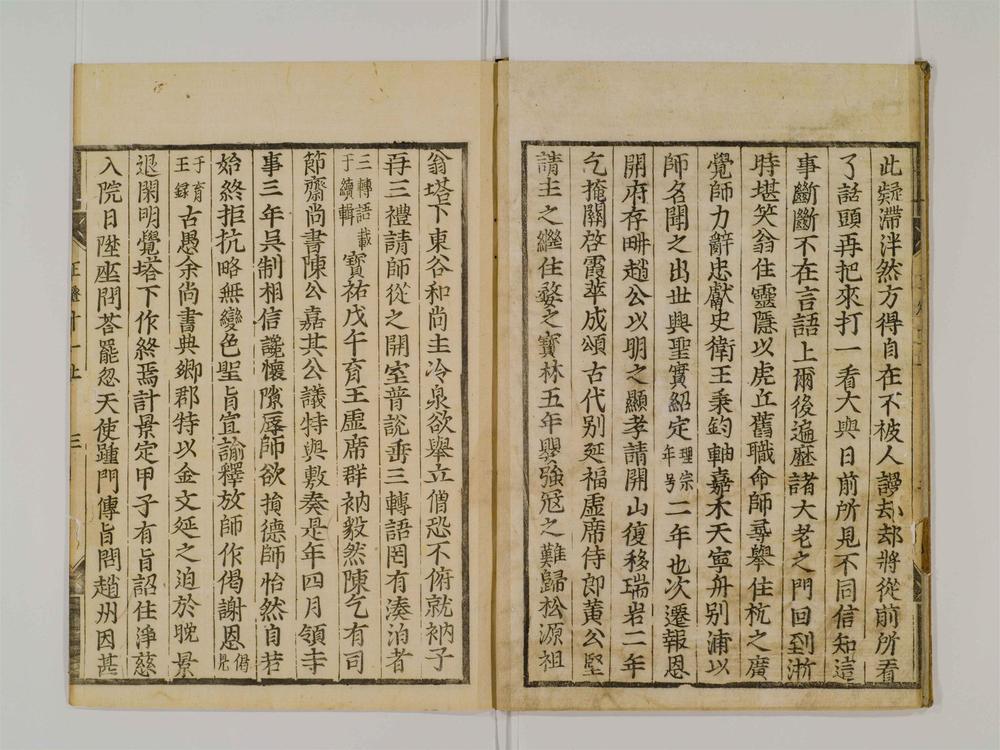 此疑滯泮然方得自在不被人謾却却將從前所看
了話頭再把來打一看大與日前所見不同信知這
事斷斷不在言語上爾後遍歷諸大老之門回到浙
時堪笑翁住靈隱以虎丘舊職命師尋舉住杭之廣
覺師力辭忠獻史衛王秉鈞軸嘉禾天寧舟別浦以
師名聞之出世興聖實紹定理宗年号二年也次遷報恩
開府存畊趙公以明之顯孝請開山復移瑞岩二年
乞掩關啓霞萃成頌古代別延福虛席侍郎黃公堅
請主之繼住婺之寶林五年嬰強冦之難歸松源祖
翁塔下東谷和尚主冷泉欲舉立僧恐不俯就衲子
再三禮請師從之開室普說垂三轉語罔有湊泊者
三轉語載于續輯寶祐戊午育王虛席群衲毅然陳乞有司
節齋尚書陳公嘉其公議特與敷奏是年四月領寺
事三年吳制相信讒懷隙辱師欲損德師怡然自若
始終拒抗略無變色聖旨宜諭釋放師作偈謝恩偈見
于育王録古愚余尚書典鄉郡特以金文延之迫於晩景
退閑明覺塔下作終焉計景定甲子有旨詔住淨慈
入院日陞座問荅罷忽天使踵門傳旨問趙州因甚
十一上
三